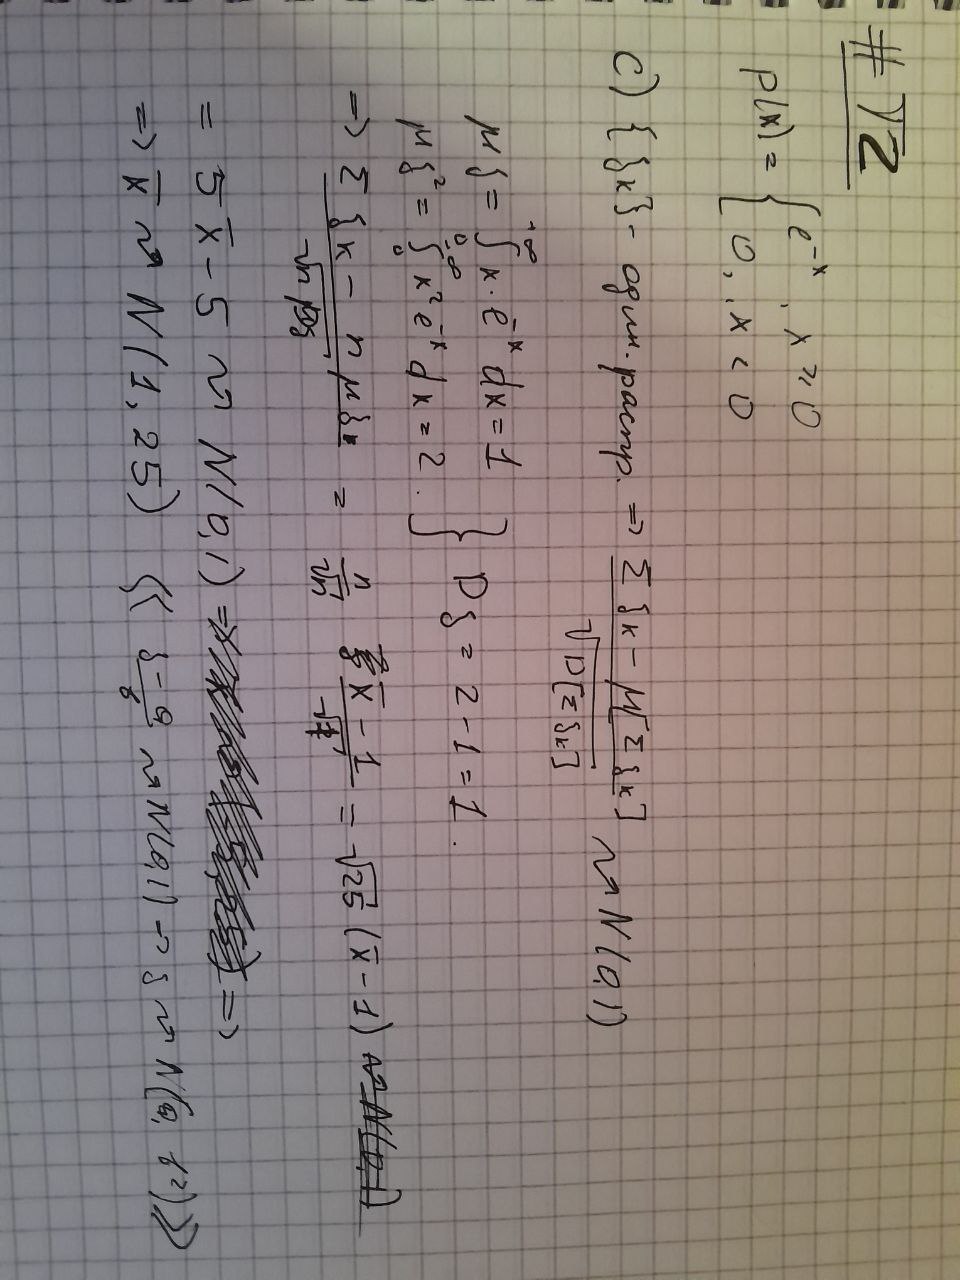 # T2
p(x) = { e^{-x}, x ≥ 0
0, x < 0
c) {ξк} - один. распр. => (Σ ξк - M[Σ ξк]) / √D[Σ ξк] ⇝ N(0,1)
Mξ = ∫₀^{+∞} x · e^{-x} dx = 1
Mξ² = ∫₀^{+∞} x² e^{-x} dx = 2. } Dξ = 2 - 1 = 1.
=> (Σ ξк - n Mξ) / √(n Dξ) = n/√n (x̄ - 1)/√1 = √25 (x̄ - 1)
= 5 x̄ - 5 ⇝ N(0,1) =>
=> x̄ ⇝ N(1, 25) « (ξ - a)/б ⇝ N(0,1) → ξ ⇝ N(a, б²) »